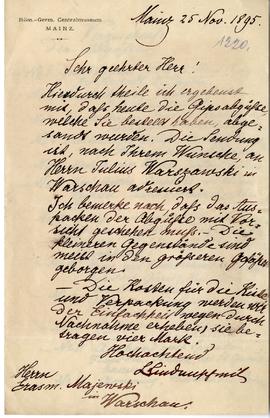 Röm.-Germ. Centralmuseum
MAINZ.
Mainz 25 Nov. 1895.
1220.
Sehr geehrter Herr!
Hierdurch theile ich ergebenst
mit, daß heute die Gipsabgüße
welche Sie bestellt haben, abge-
sandt wurden. Die Sendung
ist, nach Ihrem Wunsche, an
Herrn Julius Warszawski in
Warschau adressiert.
Ich bemerke noch, daß das Aus-
packen der Abgüße mit Vor-
sicht geschehen muß. – Die
kleineren Gegenstände sind
meist in den größeren
geborgen.
– Die Kosten für die Kiste
und Verpackung werden
der Einfachheit wegen durch
Nachnahme erhoben; sie be-
tragen vier Mark.
Hochachtend
Lindenschmit
Herrn
Erasm. Majewski
in
Warschau.